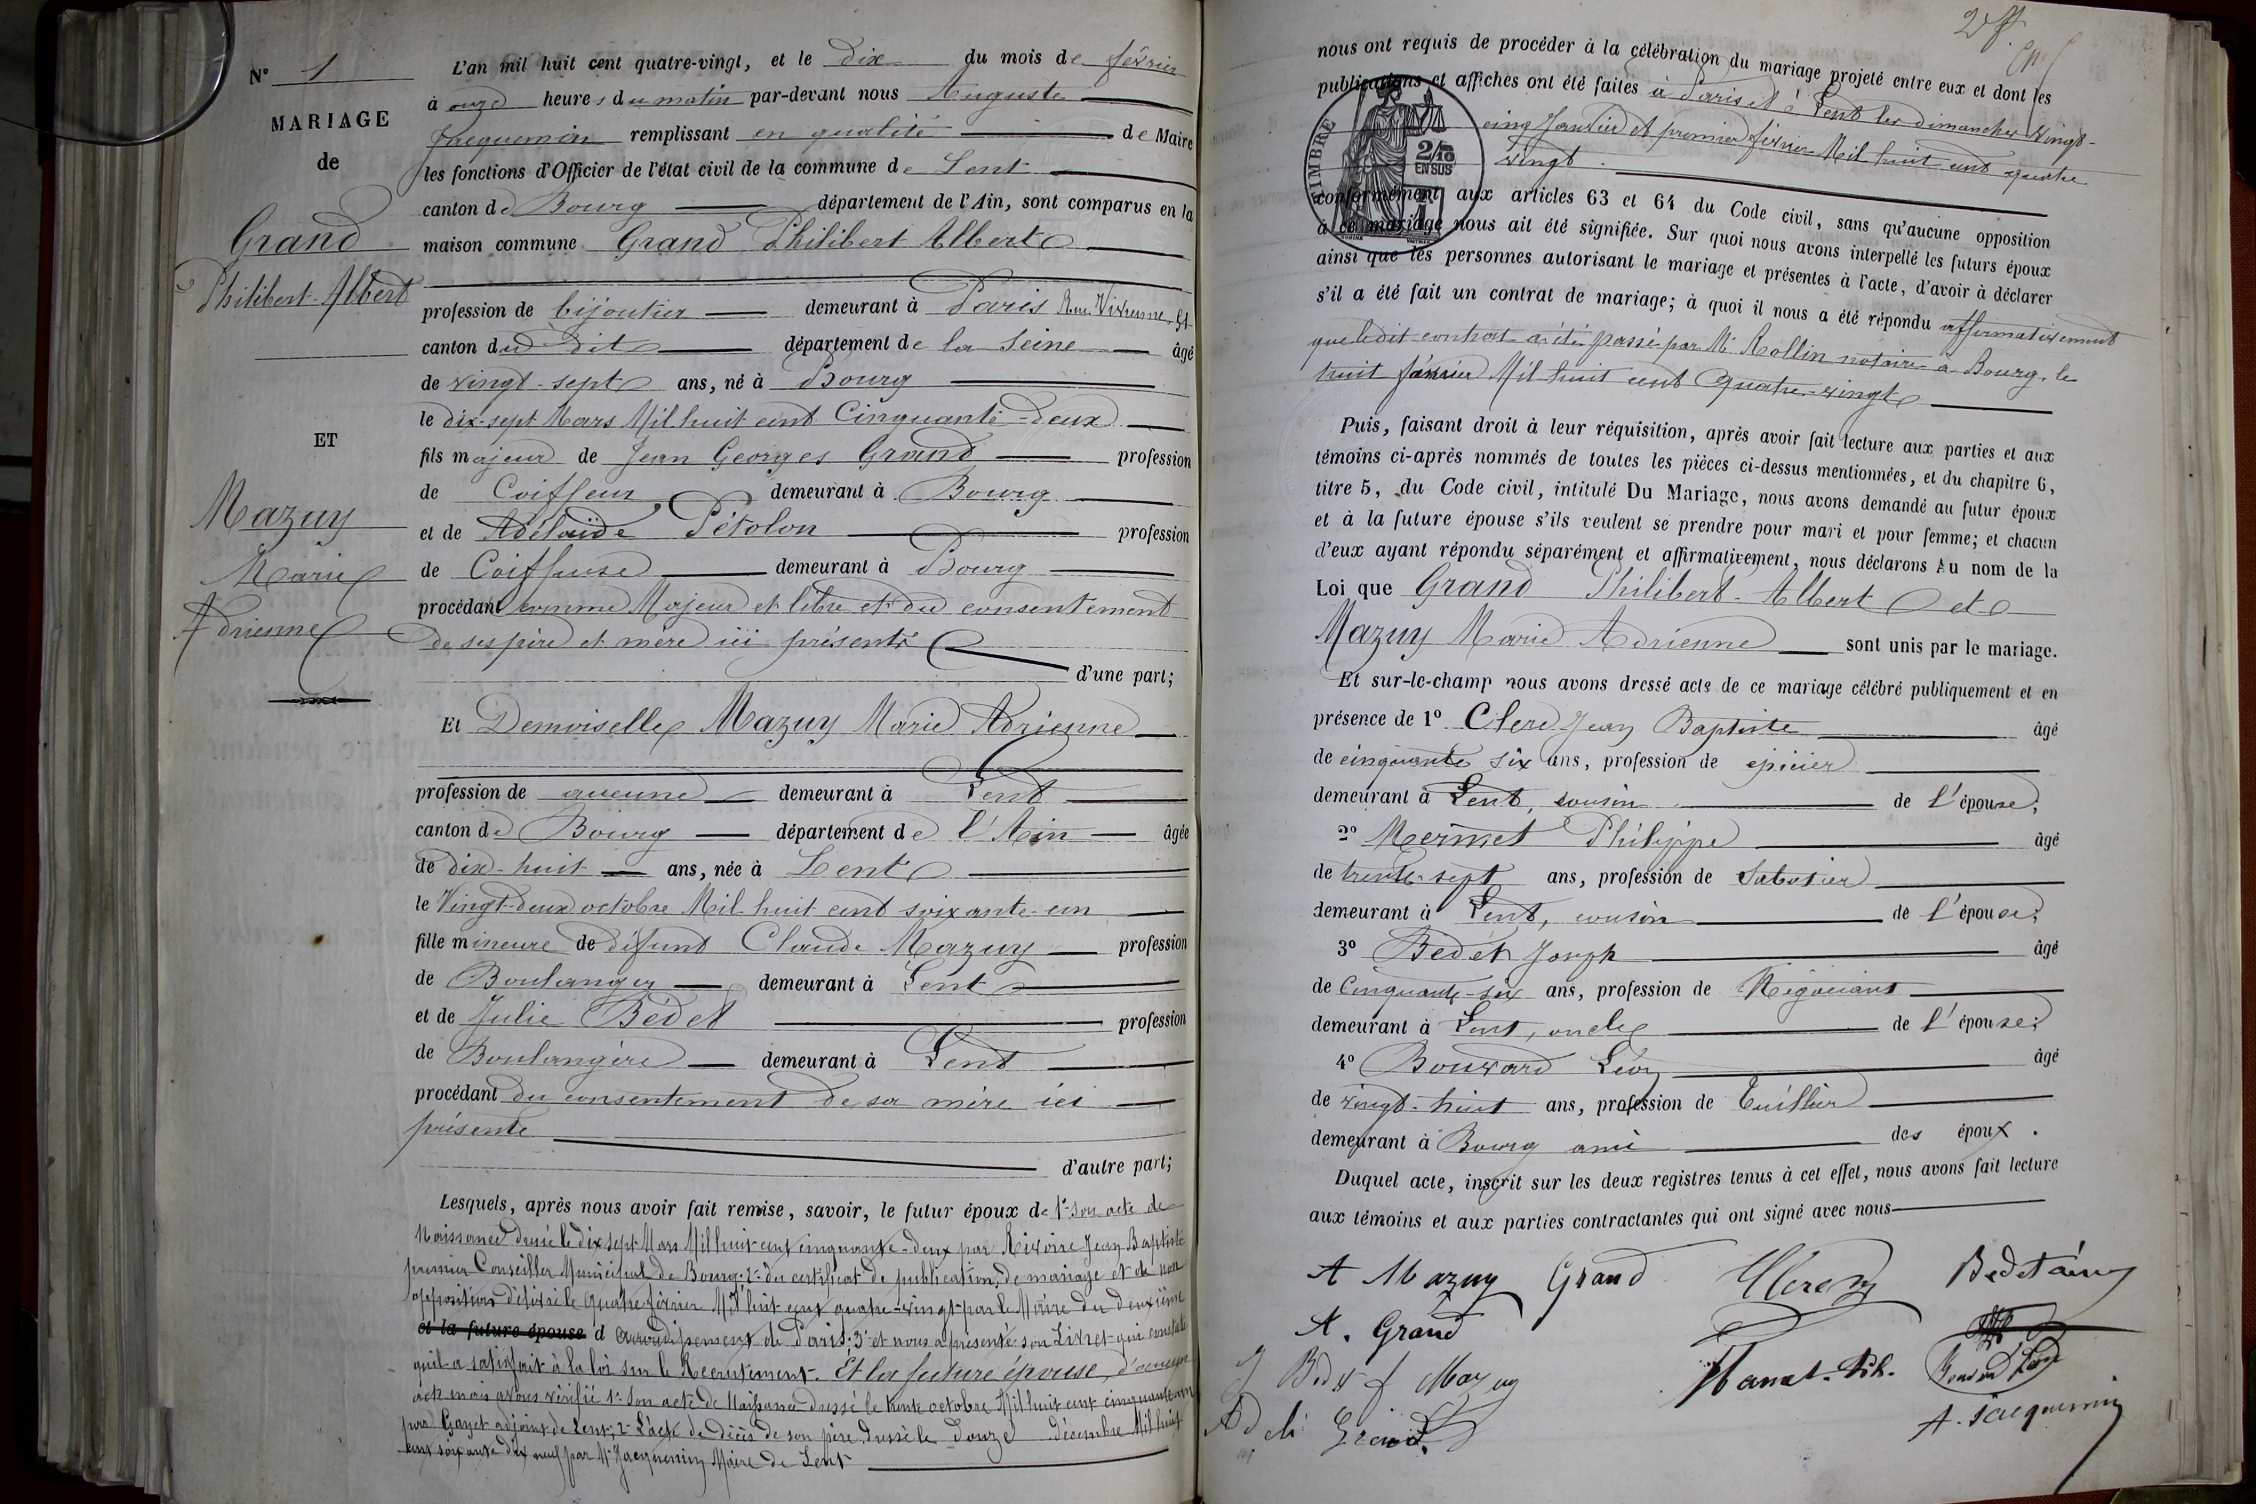 N° 1
MARIAGE
de
Grand
Philibert-Albert
ET
Mazuy
Marie
Adrienne
L'an mil huit cent quatre-vingt, et le dix du mois de février
à onze heures du matin par-devant nous Auguste
Jacquemin remplissant en qualité de Maire
les fonctions d'Officier de l'état civil de la commune de Lent
canton de Bourg département de l'Ain, sont comparus en la
maison commune Grand Philibert Albert
profession de bijoutier demeurant à Paris Rue Vivienne, 51
canton du dit département de la Seine âgé
de vingt-sept ans, né à Bourg
le dix-sept Mars Mil huit cent Cinquante-deux
fils majeur de Jean Georges Grand profession
de Coiffeur demeurant à Bourg
et de Adélaïde Pétolon profession
de Coiffeuse demeurant à Bourg
procédant comme Majeur et libre et du consentement
de ses père et mère ici présents
d'une part;
Et Demoiselle Mazuy Marie Adrienne
profession de aucune demeurant à Lent
canton de Bourg département de l'Ain âgée
de dix-huit ans, née à Lent
le Vingt-deux octobre Mil-huit cent soixante-un
fille mineure de défunt Claude Mazuy profession
de Boulanger demeurant à Lent
et de Julie Bédet profession
de Boulangère demeurant à Lent
procédant du consentement de sa mère ici
présente
d'autre part;
Lesquels, après nous avoir fait remise, savoir, le futur époux de 1° son acte de
Naissance dressé le dix sept Mars Mil huit cent cinquante-deux par Rivoire Jean Baptiste
premier Conseiller Municipal de Bourg. 2° du certificat de publication de mariage et de non
opposition délivré le quatre février Mil huit cent quatre-vingt par le Maire du deuxième
et la future épouse d arrondissement de Paris; 3° et nous a présenté son Livret qui constate
qu'il a satisfait à la loi sur le Recrutement. Et la future épouse, d'aucun
acte mais avons vérifié 1° Son acte de Naissance dressé le trente octobre Mil huit cent cinquante un
par Gayet adjoint de Lent; 2° L'acte de décès de son père dressé le Douze décembre Mil huit
cent soixante dix neuf par Mr Jacquemin Maire de Lent
nous ont requis de procéder à la célébration du mariage projeté entre eux et dont les
publications et affiches ont été faites à Paris et à Lent les dimanches vingt-
cinq Janvier et premier février Mil huit cent quatre
vingt
TIMBRE
2/10
EN SUS
conformément aux articles 63 et 64 du Code civil, sans qu'aucune opposition
à ce mariage nous ait été signifiée. Sur quoi nous avons interpellé les futurs époux
ainsi que les personnes autorisant le mariage et présentes à l'acte, d'avoir à déclarer
s'il a été fait un contrat de mariage; à quoi il nous a été répondu affirmativement
que le dit contrat a été passé par Me Rollin notaire à Bourg, le
huit février Mil huit cent Quatre-vingt
Puis, faisant droit à leur réquisition, après avoir fait lecture aux parties et aux
témoins ci-après nommés de toutes les pièces ci-dessus mentionnées, et du chapitre 6,
titre 5, du Code civil, intitulé Du Mariage, nous avons demandé au futur époux
et à la future épouse s'ils veulent se prendre pour mari et pour femme; et chacun
d'eux ayant répondu séparément et affirmativement, nous déclarons Au nom de la
Loi que Grand Philibert-Albert et
Mazuy Marie Adrienne sont unis par le mariage.
Et sur-le-champ nous avons dressé acte de ce mariage célébré publiquement et en
présence de 1° Clerc Jean Baptiste âgé
de cinquante six ans, profession de épicier
demeurant à Lent, cousin de l'épouse;
2° Mermet Philippe âgé
de trente-sept ans, profession de Sabotier
demeurant à Lent, cousin de l'épouse;
3° Bédet Joseph âgé
de Cinquante-six ans, profession de Négociant
demeurant à Lent, oncle de l'épouse;
4° Bouvard Léon âgé
de vingt-huit ans, profession de Tuillier
demeurant à Bourg ami des époux.
Duquel acte, inscrit sur les deux registres tenus à cet effet, nous avons fait lecture
aux témoins et aux parties contractantes qui ont signé avec nous
A Mazuy Grand Clerc Bedet aîné
A. Grand
J Bedet f Mazuy
Bouvard Léon
Adèle Grand
A. Jacquemin